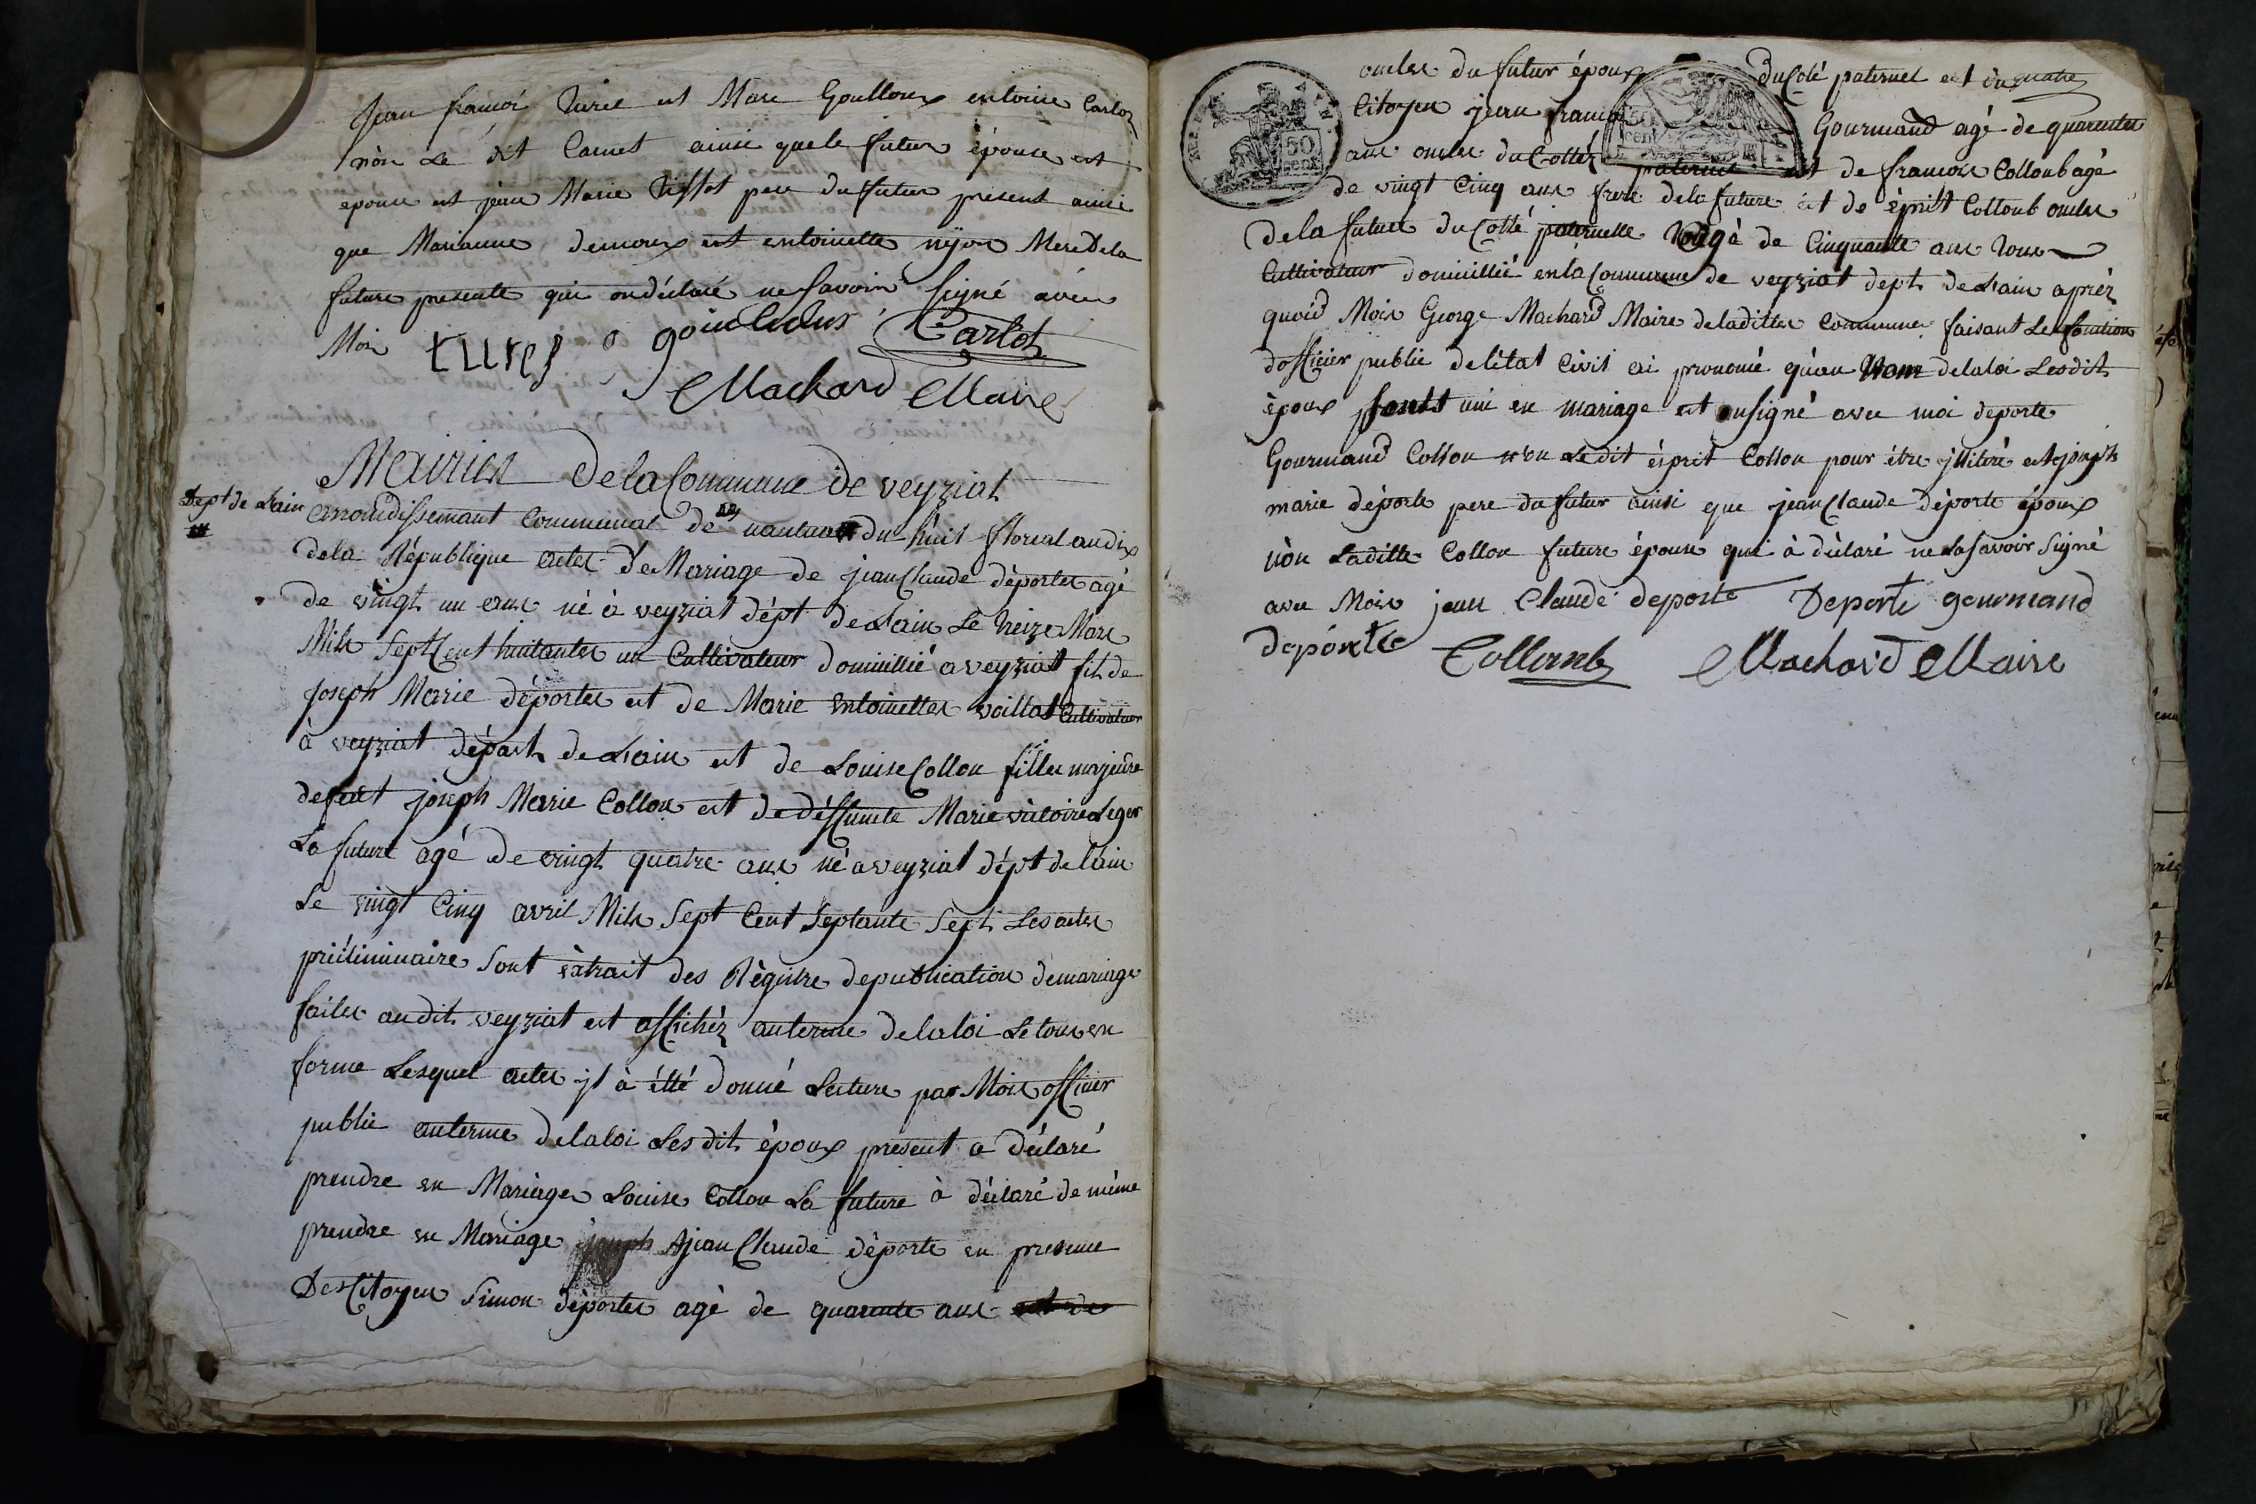 Jean francoi Turel et Marc Goulloux entoine Carloz
nòn Le dit Carnet ainsi que le futur épouse et
epouse et jean Marie Tissot pere du futur present ainsi
que Marianne demoux est entoinette nyon Mere de la
future presente qui on déclaré ne Savoir Signé avec
Moi turel goulloux Carlot
Machard Maire
Mairie De la Commune de veyziat
Dept de Lain
arrondissemant Communal de nantua du huit floreal an dix
de la République acte De Mariage de jean Claude déporte agé
de vingt un ans né à veyziat dépt de Lain Le treize Mars
Mile Sept Cent huitante un Cultivateur domicillié a veyziat fil de
Joseph Marie déporte et de Marie entoinette vaillat Cultivateur
à veyziat départ de Lain et de Louise Collon fille majeure
de feut joseph Marie Collon et de déffunte Marie victoire Leger
La future agé de vingt quatre ans né a veyziat dépt de lain
Le vingt Cinq avril Mile Sept Cent Septante Sept Les acte
préeliminaire Sont èxtrait des Régistre de publication de mariage
faite au dit veyziat et affichéz au terme de la loi Le tous en
forme Lesquel acte jl à étté donné Lecture par Moi officier
public au terme de la loi Les dit époux present a déclaré
prendre en Mariage Louise Collon La future à déclaré de méme
prendre en Mariage joseph A jean Claude déporte en presence
Des Citoyen Simon déporte agé de quarente ans et de
oncle du futur époux du Coté paternel et du
Citoyen jean francoi Gourmand agé de quarente
ans oncle du Cottéz paternel et de francois Colloub agé
de vingt Cinq ans frere de la future et de éprit Colloub oncle
de la future du Cotté paternelle agé de Cinquante ans tous
Cultivateur domicillié en la Commune de veyziat dept de Lain apréz
quoid Moi George Machard Maire de la ditte Commune faisant Les fonction
dofficier public de létat Civil ai prononcé quau Nom de la loi Les dit
époux sont uni en mariage et on signé avec moi deporte
Gourmand Collon non Le dit ésprit Collon pour étre jlliteré et joseph
marie déporte pere du futur ainsi que jean Claude déporte époux
nòn Laditte Collon future épouse qui à déclaré ne La savoir Signé
avec Moi jean Claude deporte Deporte gourmand
deporte Collomb Machard Maire
50 cent
50 cent